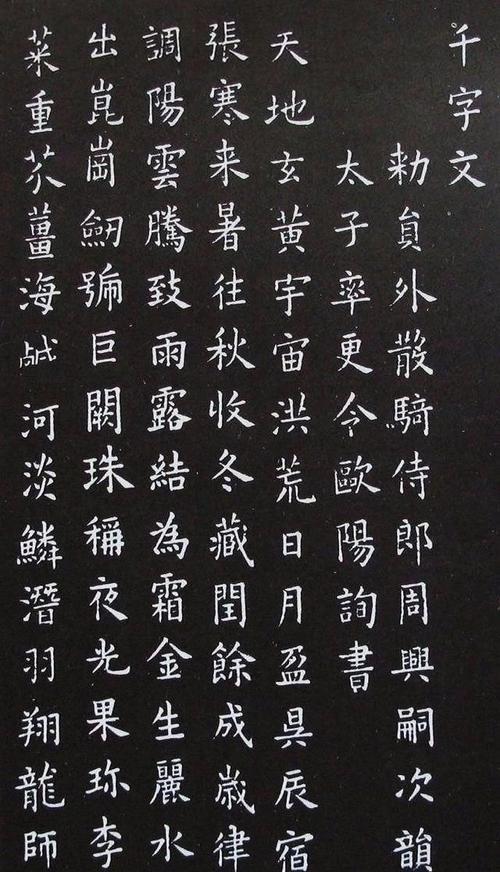 千字文
勑貟外散騎侍郎周興嗣次韻
太子率更令歐陽詢書
天地玄黄宇宙洪荒日月盈昃辰宿
張寒来暑往秋收冬藏閏餘成嵗律
調陽雲騰致雨露結為霜金生麗水
出崑崗劒號巨闕珠稱夜光果珎李
菜重芥薑海鹹河淡鱗潛羽翔龍師